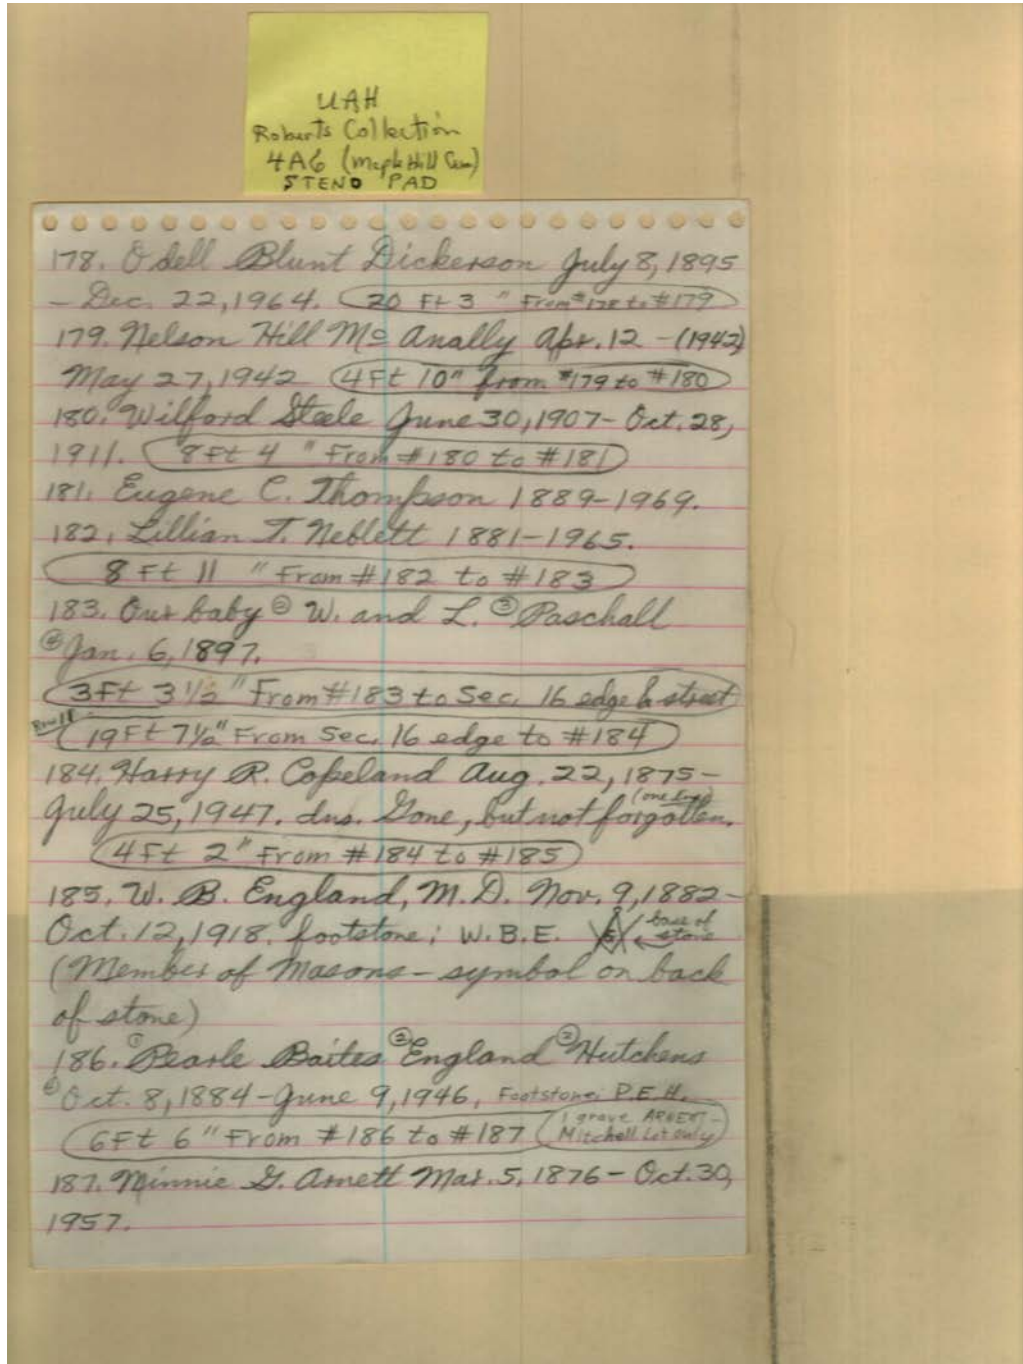 UAH
Roberts Collection
4A6 (Maple Hill Cem)
STENO PAD
178. Odell Blunt Dickerson July 8, 1895
- Dec. 22, 1964. 20 Ft 3 " From #178 to #179
179. Nelson Hill Mc Anally Apr. 12 - (1942)
May 27, 1942 4 Ft 10" from #179 to #180
180. Wilford Steele June 30, 1907 - Oct. 28,
1911. 8 Ft 4 " From #180 to #181
181. Eugene C. Thompson 1889-1969.
182. Lillian T. Neblett 1881-1965.
8 Ft 11 " From #182 to #183
183. Our baby ② W. and L. ③ Paschall
④ Jan. 6, 1897.
3 Ft 3 1/2 " From #183 to Sec. 16 edge & street
Row 11
19 Ft 7 1/2" From Sec. 16 edge to #184
184. Harry R. Copeland Aug. 22, 1875 -
(one line)
July 25, 1947. dns. Gone, but not forgotten.
4 Ft 2" From #184 to #185
185. W. B. England, M.D. Nov. 9, 1882 -
Oct. 12, 1918. footstone: W.B.E. base of stone
(Member of Masons - symbol on back
of stone)
186. ① Pearle Baites ② England ③ Hutchens
④ Oct. 8, 1884 - June 9, 1946, Footstone: P.E.H.
6 Ft 6 " From #186 to #187 (1 grave -
Mitchell Lot only)
187. Minnie G. Arnett Mar. 5, 1876 - Oct. 30,
1957.